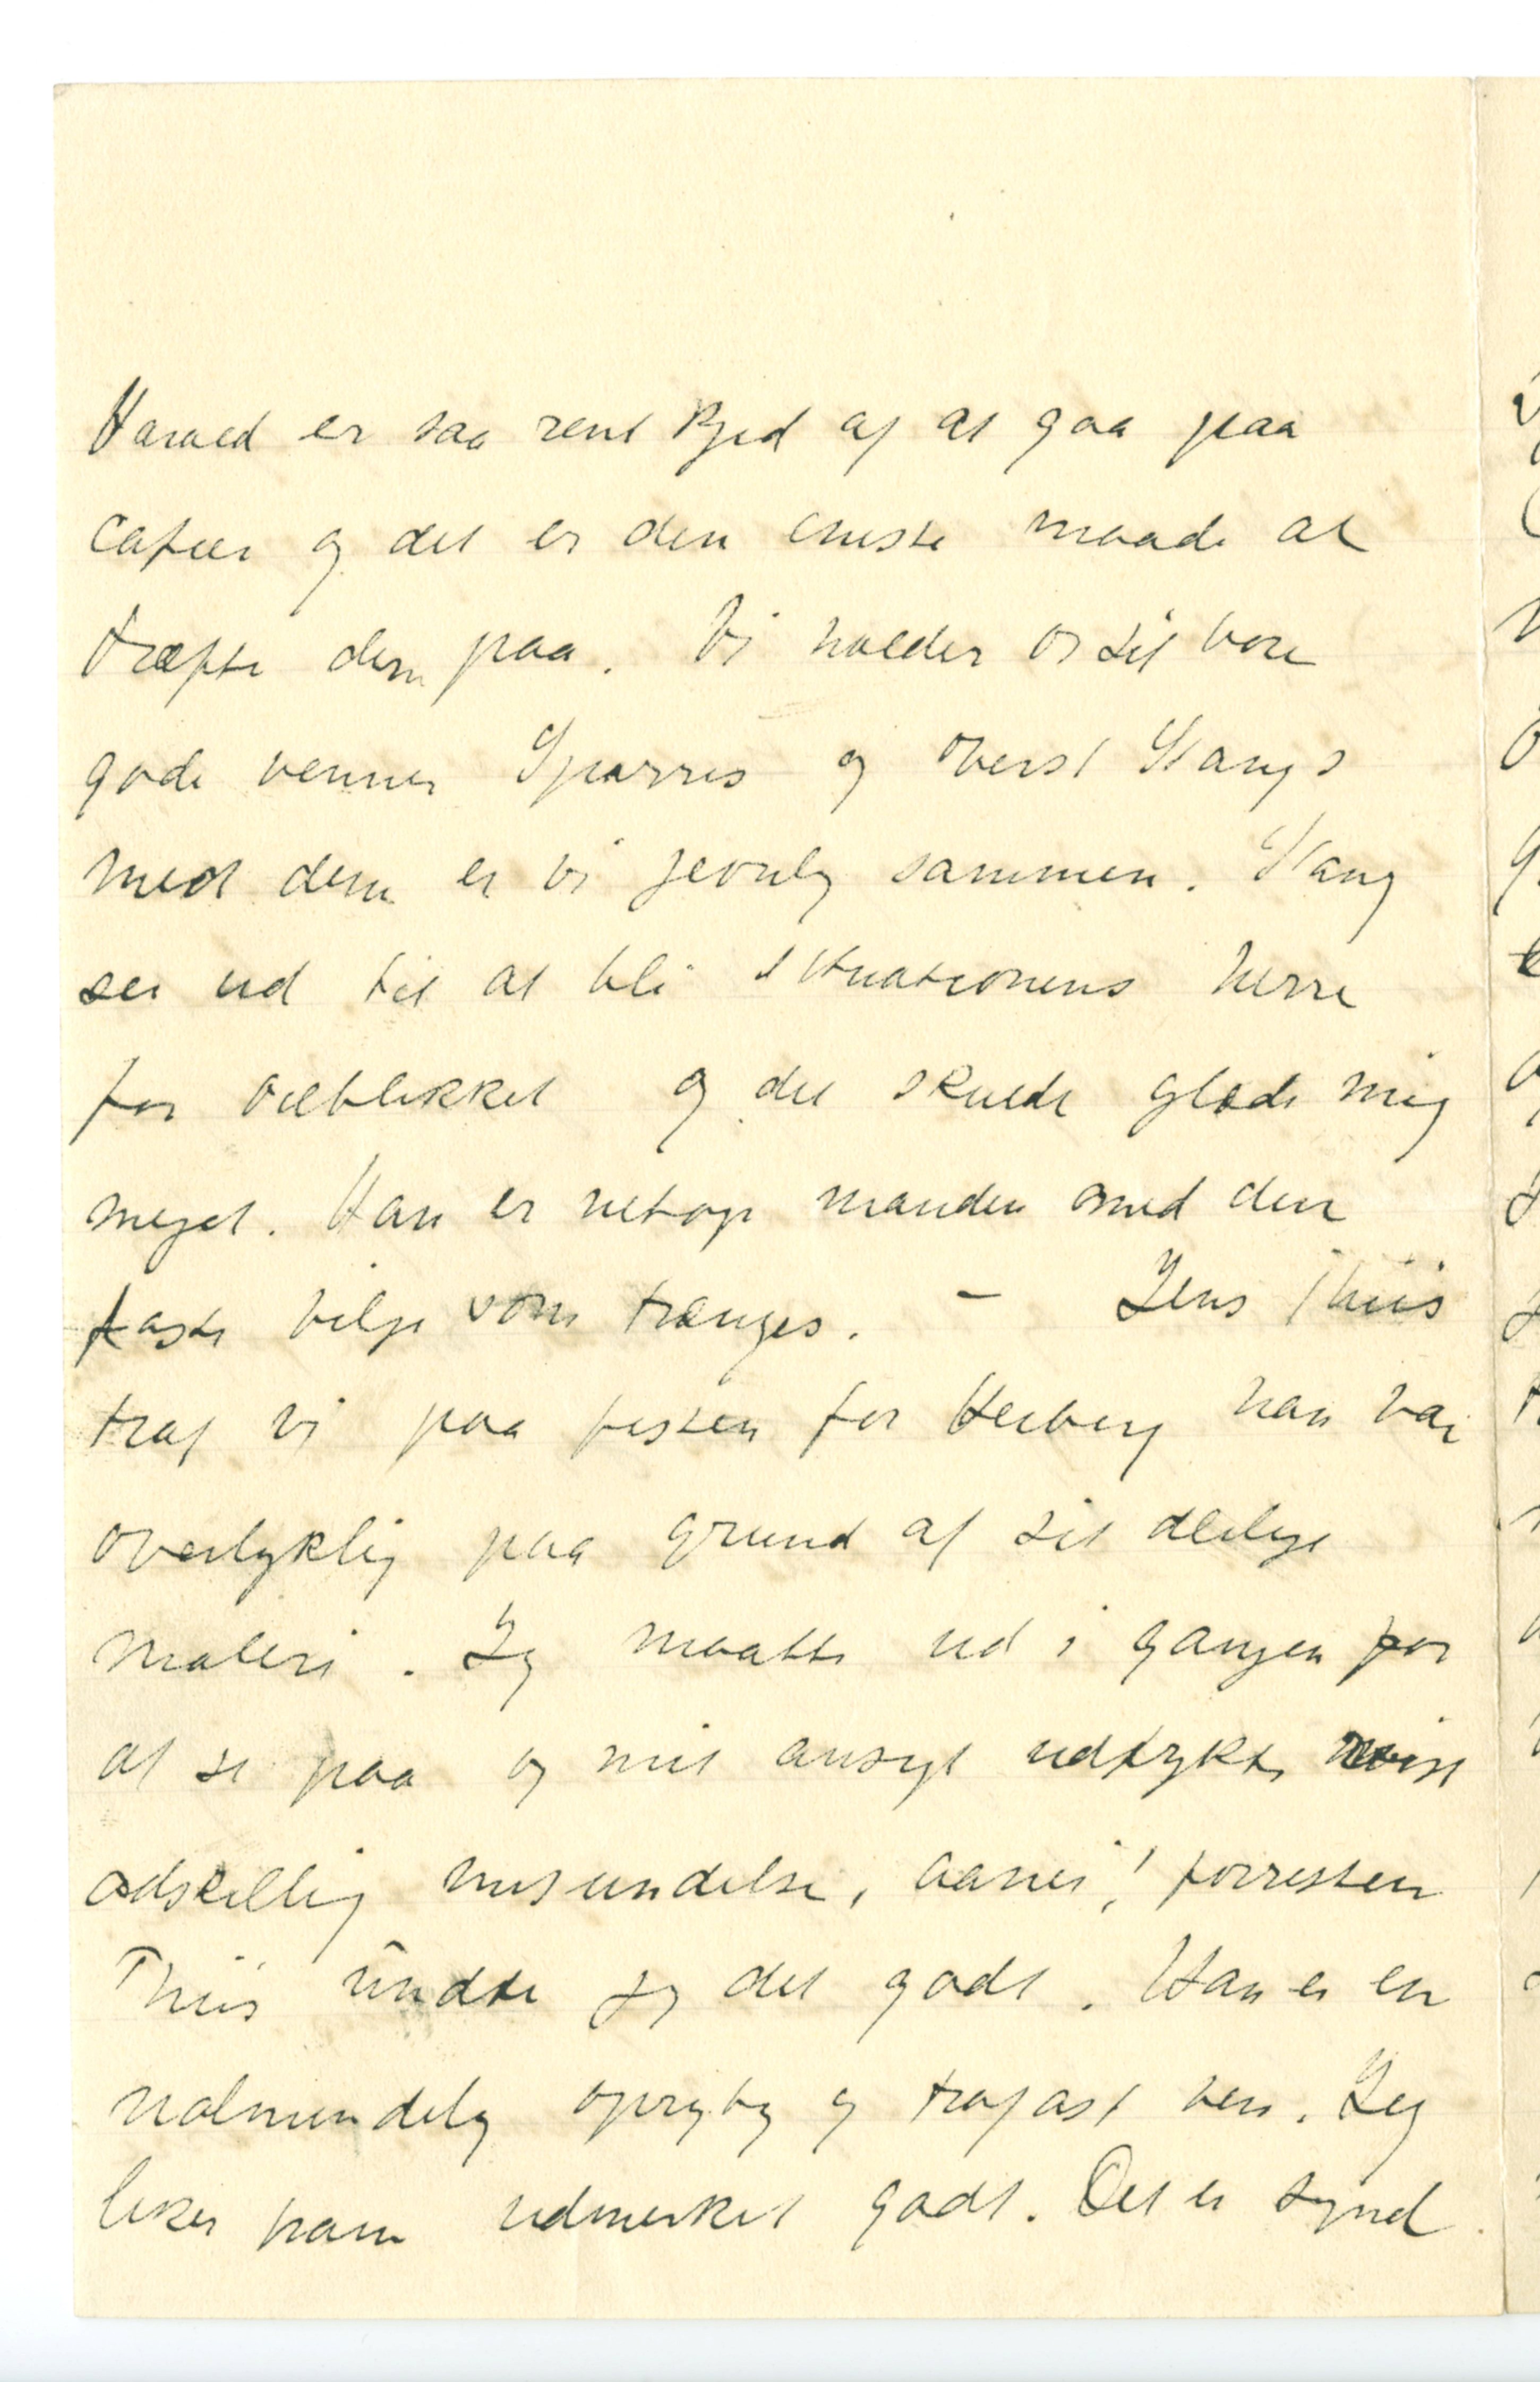 Harald er saa rent kjed af at gaa paa
Cafeer og det er den eneste maade at
træffe dem paa. Vi holder os til vore
gode venner Sparres og Oberst Stangs
med dem er vi jevnlig sammen. Stang
ser ud til at bli situationens herre
for øieblikket og det skulde glæde mig
meget. Han er netop manden med den
faste vilje som trænges. – Jens Thiis
traf vi paa festen for Heiberg han var
overlykkelig paa grund af sit deilige
maleri. Jeg maatte ud i gangen for
at se paa og mit ansigt udtrykte vist
adskillig misundelse, aanei! forresten
Thiis undte jeg det godt. Han er en
ualmindelig oprigtig og trofast ven. Jeg
liker ham udmerket godt. Det er synd